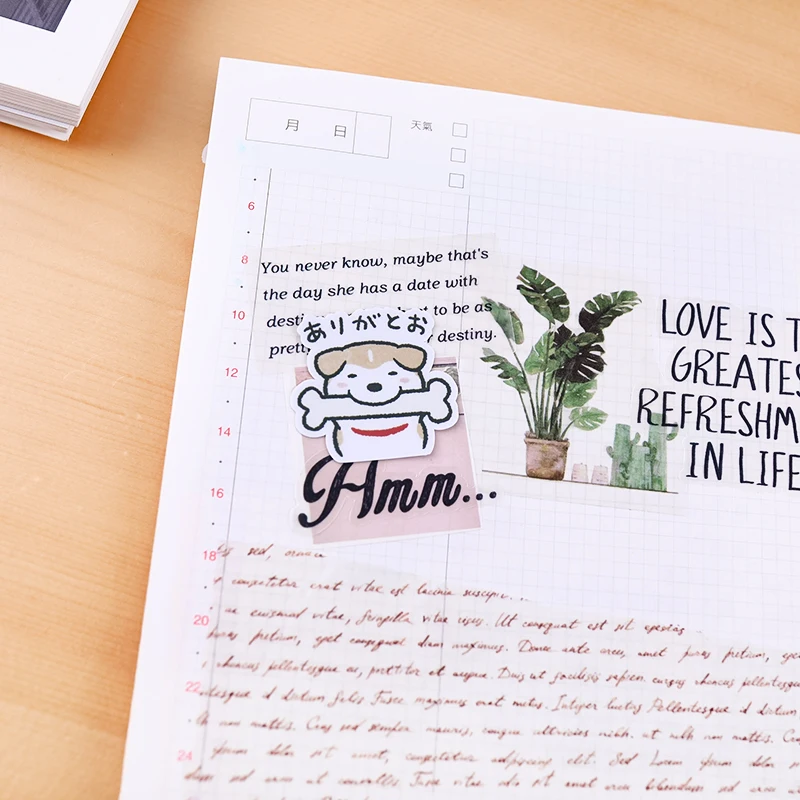 月 日
天氣
6
8
10
12
14
16
18
20
22
24
You never know, maybe that's
the day she has a date with
to be as
destiny.
ありがとお
Hmm...
LOVE IS
GREATES
REFRESHM
IN LIFE
sed,
consectetur erat vitae est lacinia suscipit
euismod vitae, fringilla vitae risus. Ut consequat est sit egestas
pretium, eget consequat diam maximus. Donec ante arcu, amet purus pretium,
rhoncus pellentesque ac, porttitor et neque. Duis ut facilisis sapien. cursus rhoncus pellentesque
d dictum felis Fusce maximus erat metus. Integer luctus Pellentesque d dictum
non mattis. Cras sed semper mauris, congue ultricies nibh. ut nibh non mattis.
Ipsum dolor sit amet, consectetur adipiscing elit. Sed Lorem ipsum dolor
sed arcu at convallis Fusce vitae odio sit amet arcu bibendum sed arcu